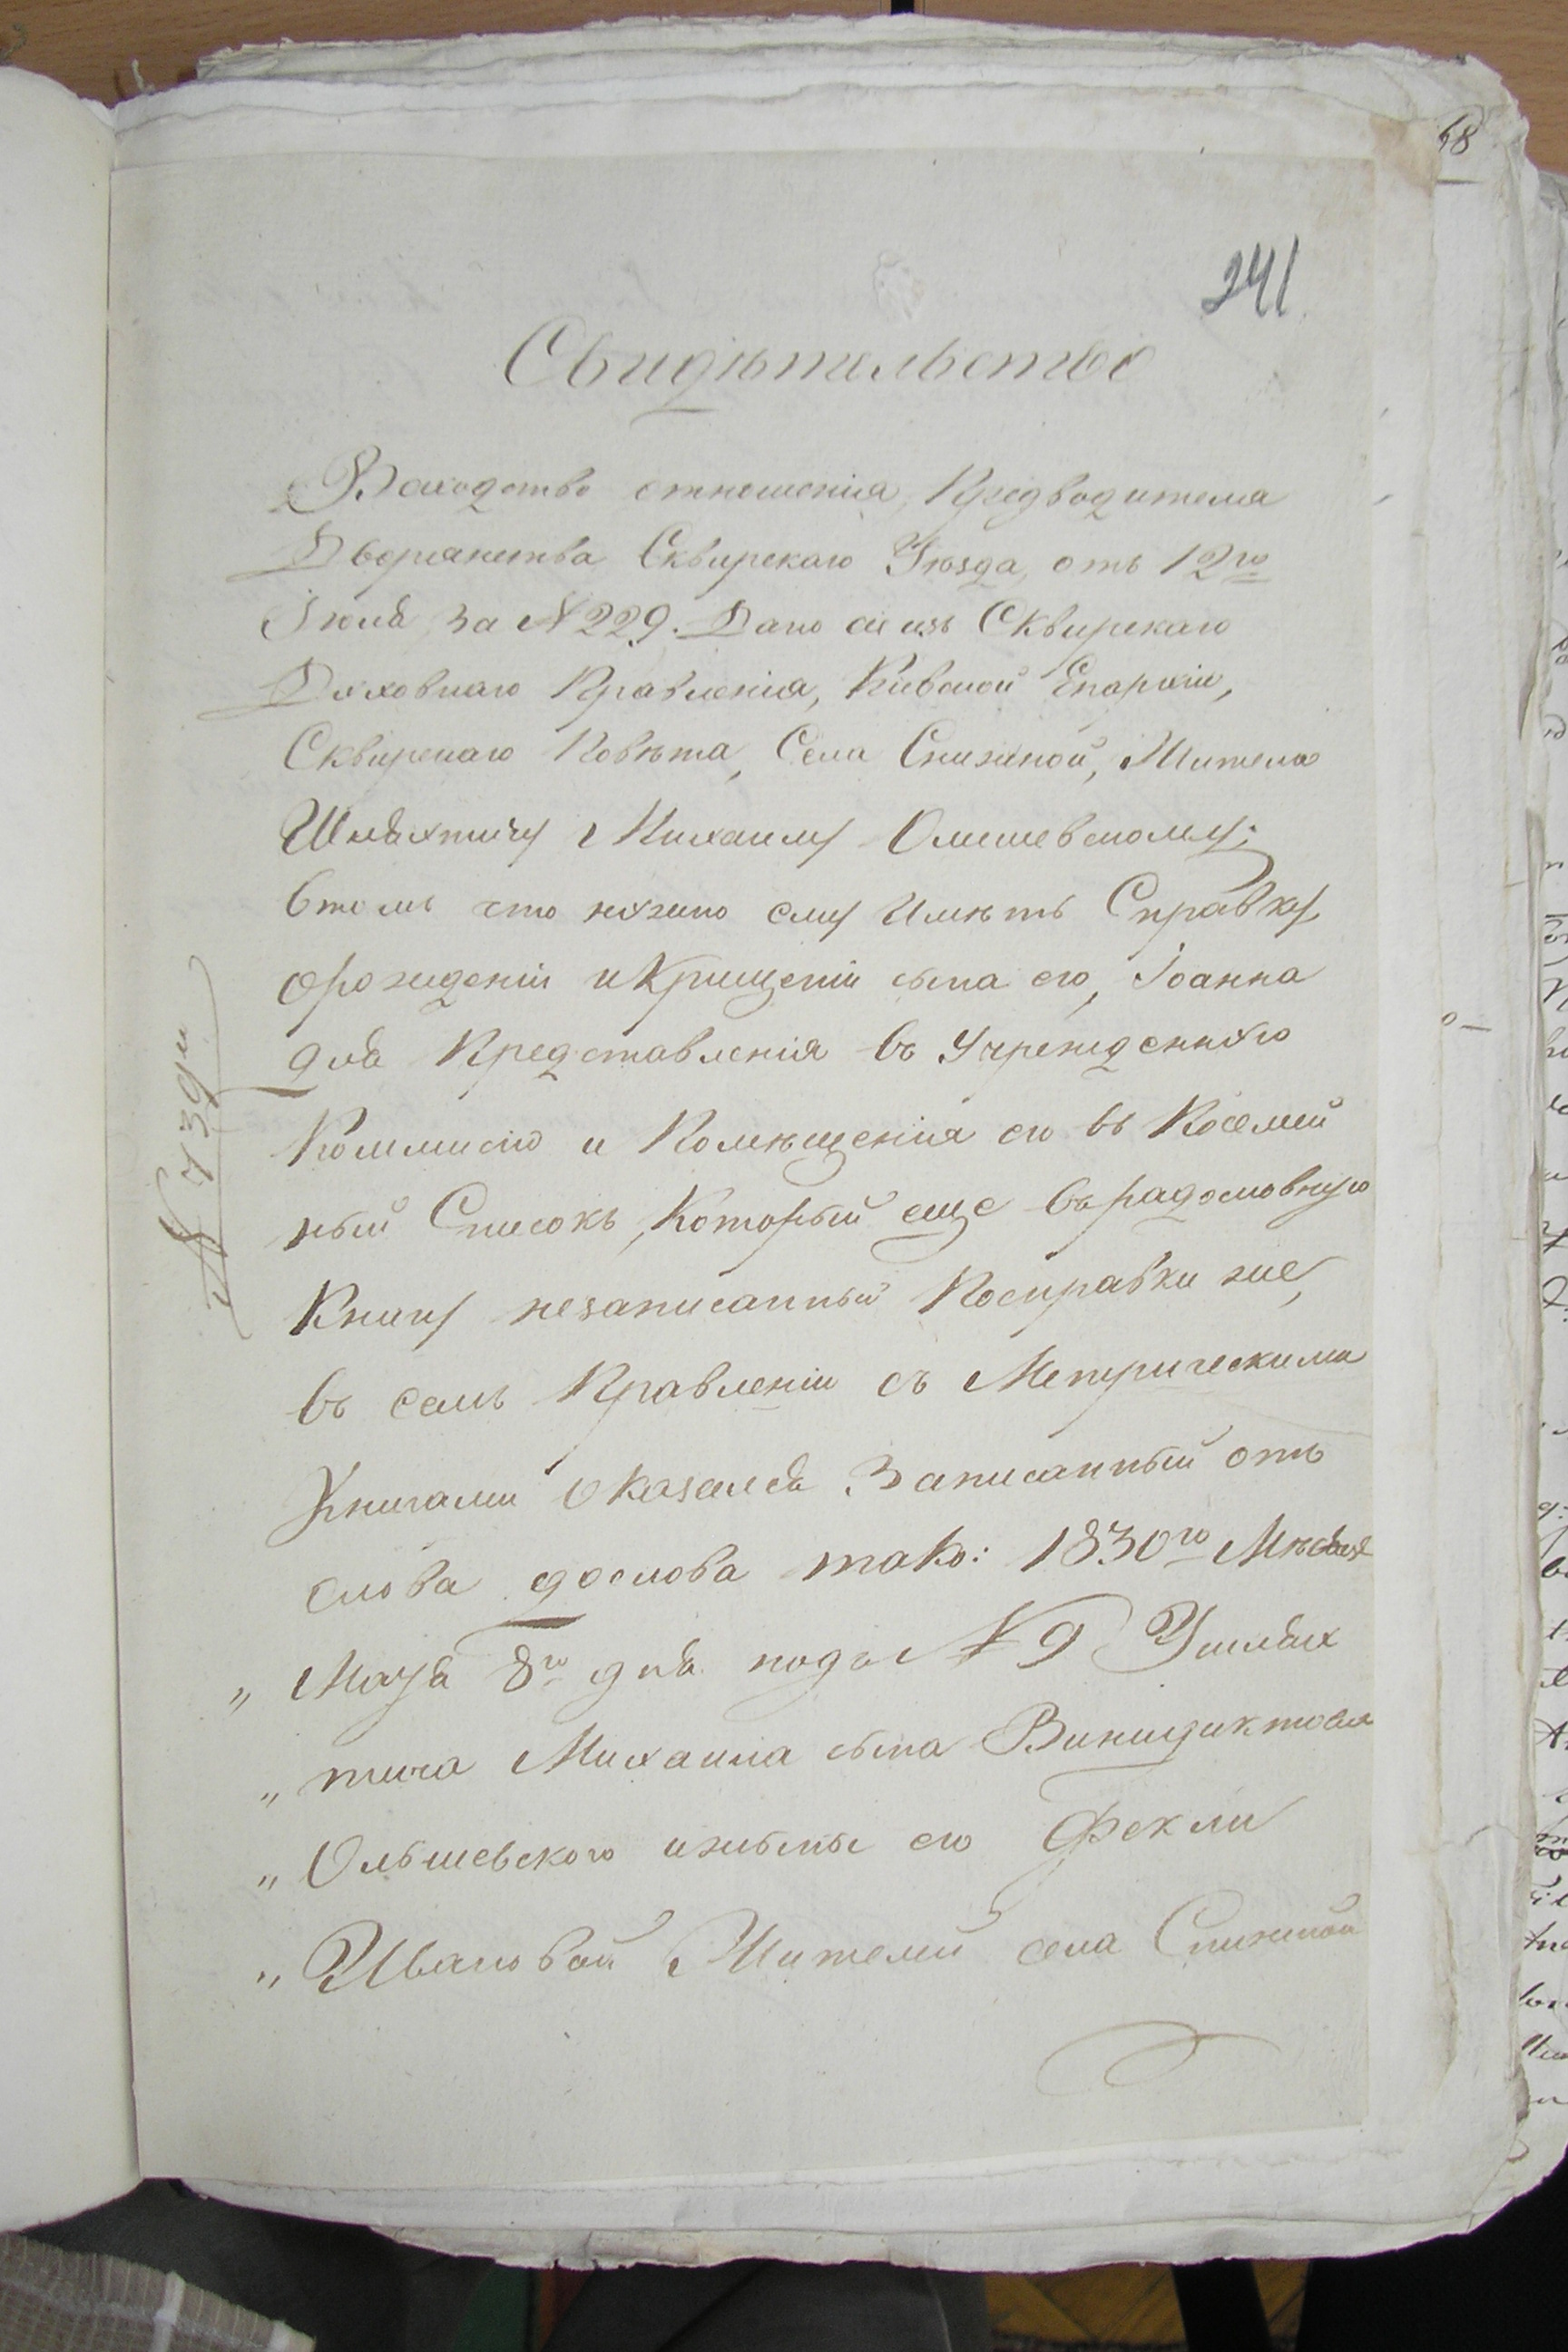 68
241
Свидѣтельство
Вслюдство отношенія Предводителя
Дворянства Сквирскаго Уѣзда, отъ 12го
Іюля за №229. Дано сіе изъ Сквирскаго
Духовнаго Правленія, Кіевской Епархіи,
Сквирскаго Повѣта, Села Снижной, Жителю
Шляхтичу Михаилу Олшевскому;
втомъ что нужно ему Имѣть Справку
орожденіи иКрищеніи сына его, Іоанна
для Представленія въ Учрежденную
Коммисію и Помѣщенія его въ Посемей
ный Списокъ, Который еще въ радословную
Книгу незаписанный Посправки же,
въ семъ Правленіи съ Метрическими
Книгами Оказался Записанный отъ
слова дослова тако: 1830го Мѣсяця
„ Мауя 8го дня подъ №9 Ушлях
„ тича Михаила сына Винидиктова
„ Ольшевского ижыны его Фекли
„ Ивановой Жителей села Снижной
№ 439й